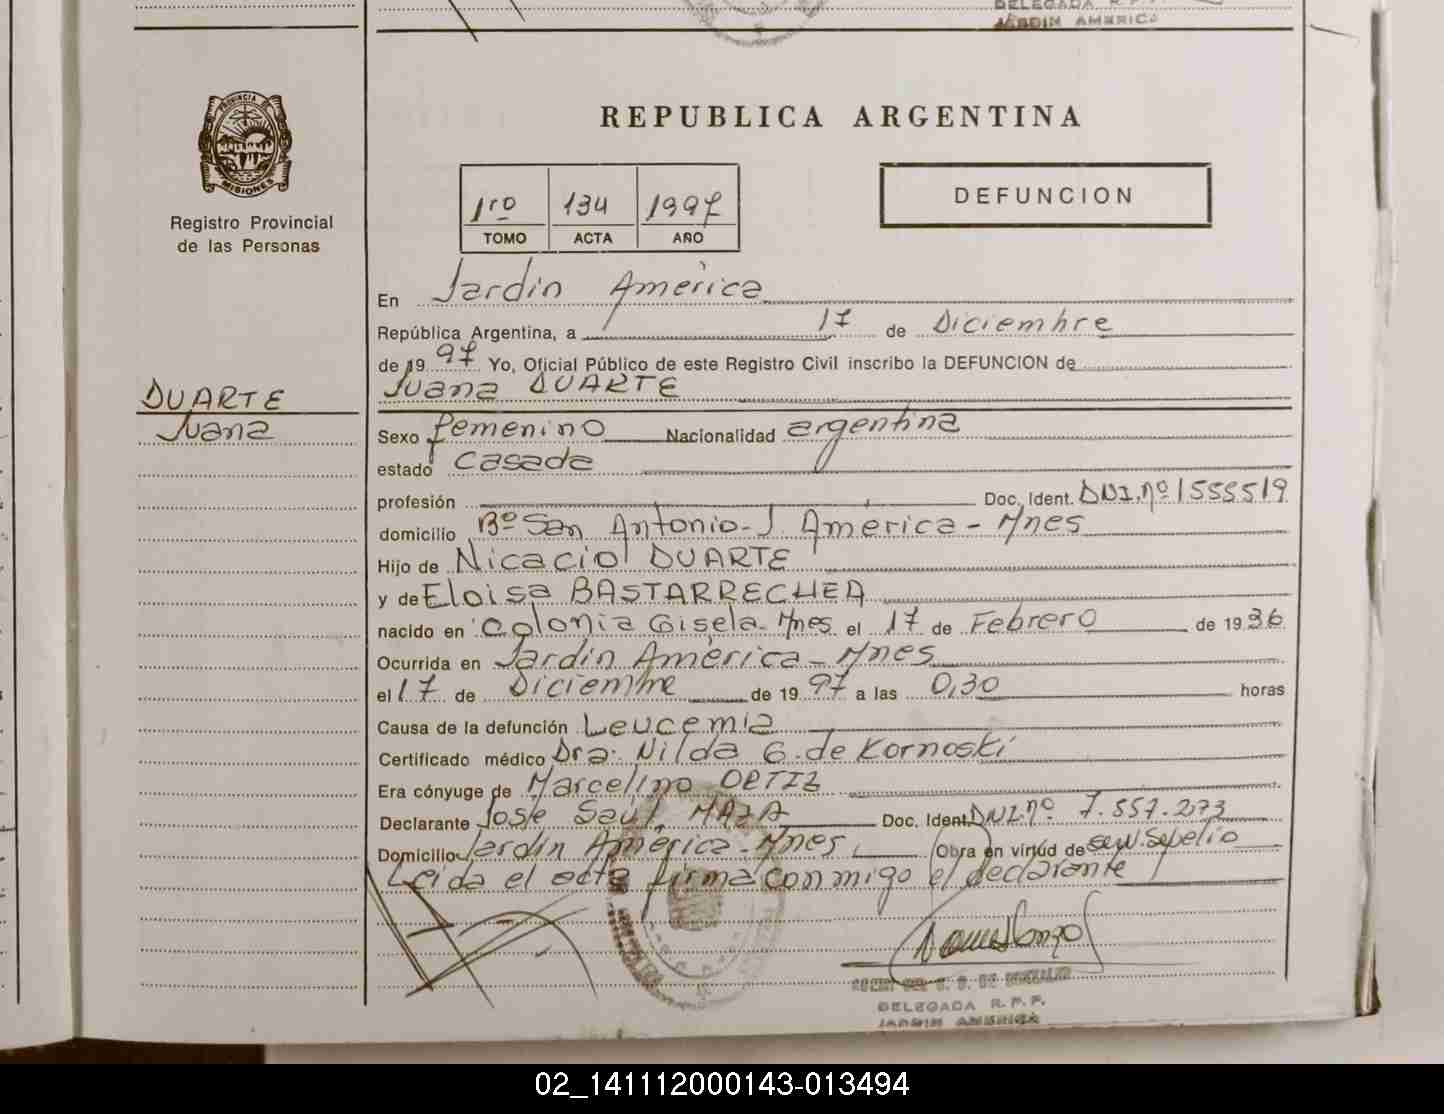 DELEGADA R.P.P.
JARDIN AMERICA
PROVINCIA DE
MISIONES
Registro Provincial
de las Personas
REPUBLICA ARGENTINA
1ro 134 1997
TOMO ACTA AÑO
DEFUNCION
En Jardin América
República Argentina, a 17 de Diciembre
de 1997 Yo, Oficial Público de este Registro Civil inscribo la DEFUNCION de
Juana DUARTE
DUARTE
Juana
Sexo femenino Nacionalidad argentina
estado casada
profesión Doc. Ident. DNI.nº 1555519
domicilio Bº San Antonio-J. América-Mnes
Hijo de Nicacio DUARTE
y de Eloisa BASTARRECHEA
nacido en Colonia Gisela-Mnes el 17 de Febrero de 1936
Ocurrida en Jardin América-Mnes
el 17 de Diciembre de 1997 a las 0,30 horas
Causa de la defunción Leucemia
Certificado médico Dra. Nilda G. de Kornoski
Era cónyuge de Marcelino ORTIZ
Declarante José Saúl MAZA Doc. Ident. DNI.nº 7.557.273
Domicilio Jardin América-Mnes Obra en virtud de serv.Sepelio
Leida el acta firma conmigo el declarante
DELEGADA R.P.P.
JARDIN AMERICA
02_141112000143-013494